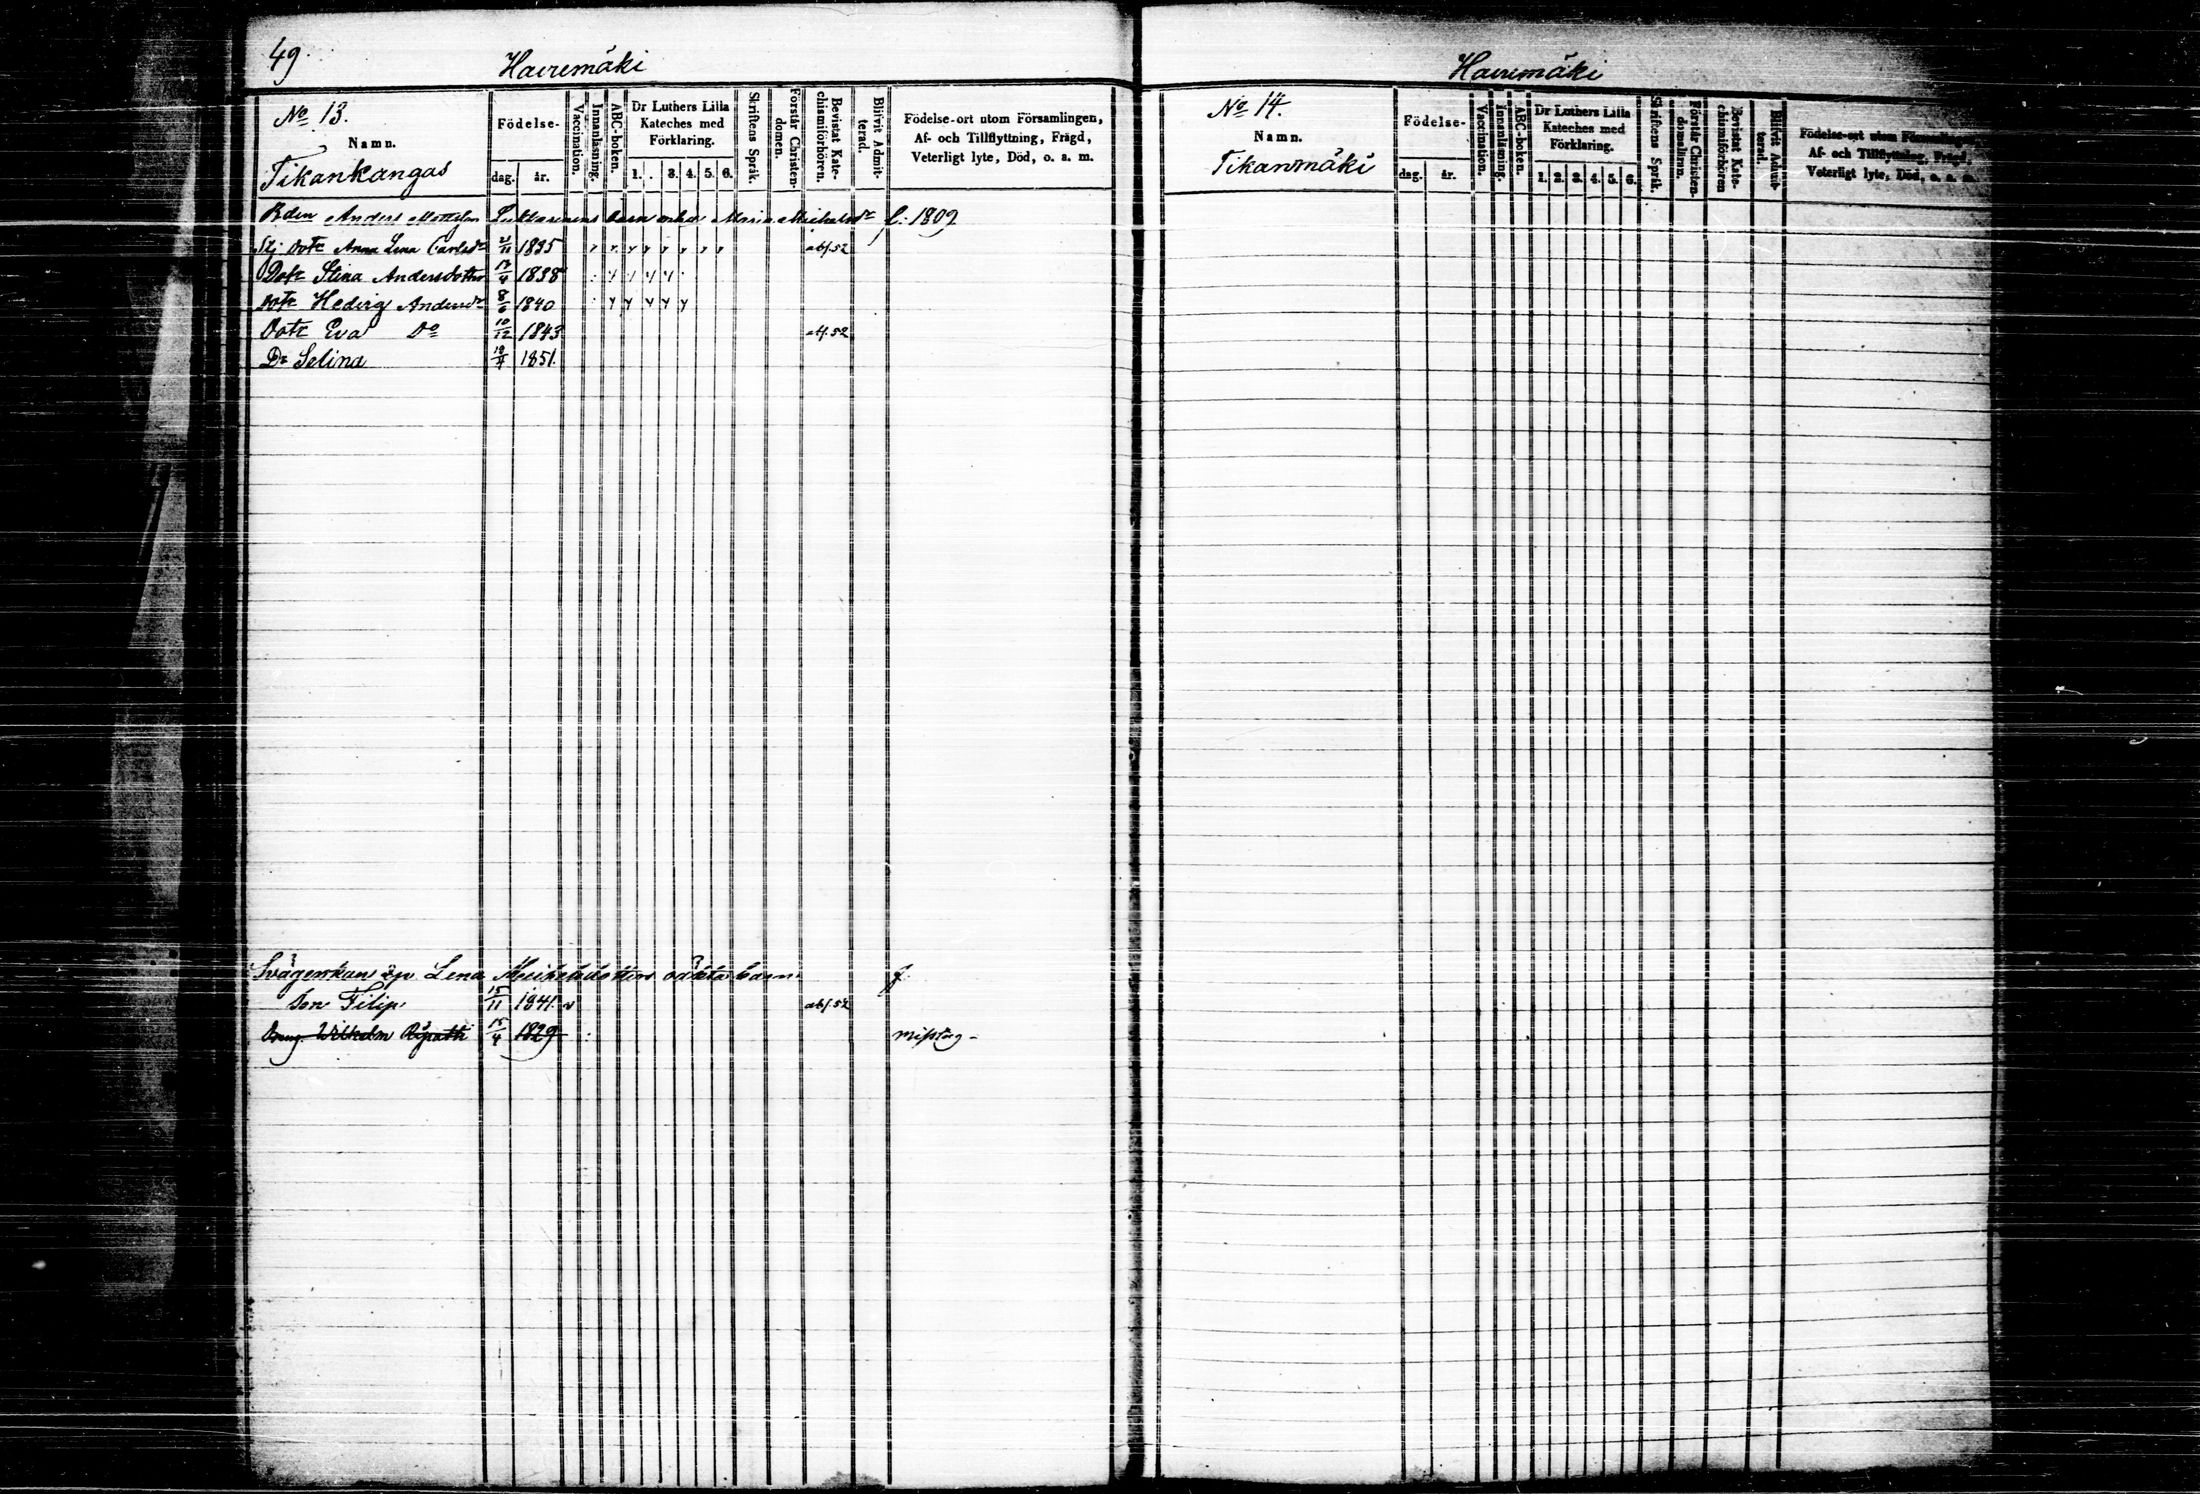 49.
Haviremäki
No 13.
Namn.
Tikankangas
Födelse-
dag. år.
Vaccination.
Innanläsning.
ABC-boken.
Dr Luthers Lilla
Kateches med
Förklaring.
1. . 3. 4. 5. 6.
Skriftens Språk.
Förstår Christen-
domen.
Bevistat Kate-
chismiförhören.
Blifvit Admit-
terad.
Födelse-ort utom Församlingen,
Af- och Tillflyttning, Frägd,
Veterligt lyte, Död, o. a. m.
Anders Mattson barn Maria Michelsdr f. 1809
Stj dotr Anna Lena Carlsdr 21/11 1835 abs. 52
Dotr Stina Andersdotter 13/4 1838
Dotr Hedvig Andersdr 8/6 1840
Dotr Eva Do 10/12 1843 abs. 52
Dr Selina 19/4 1851.
Svägerskan Lena oäkta barn f.
Son Filip 15/11 1841 abs. 52
Wilhelm 15/4 1829 misstag -
Haviremäki
No 14.
Namn.
Tikanmäki
Födelse-
dag. år.
Vaccination.
Innanläsning.
ABC-boken.
Dr Luthers Lilla
Kateches med
Förklaring.
1. 2. 3. 4. 5. 6.
Skriftens Språk.
Förstår Christen-
domslärn.
Bevistat Kate-
chismiförhören
Blifvit Admit-
terad.
Födelse-ort utom Församlingen
Af- och Tillflyttning, Frägd,
Veterligt lyte, Död, o. a. m.